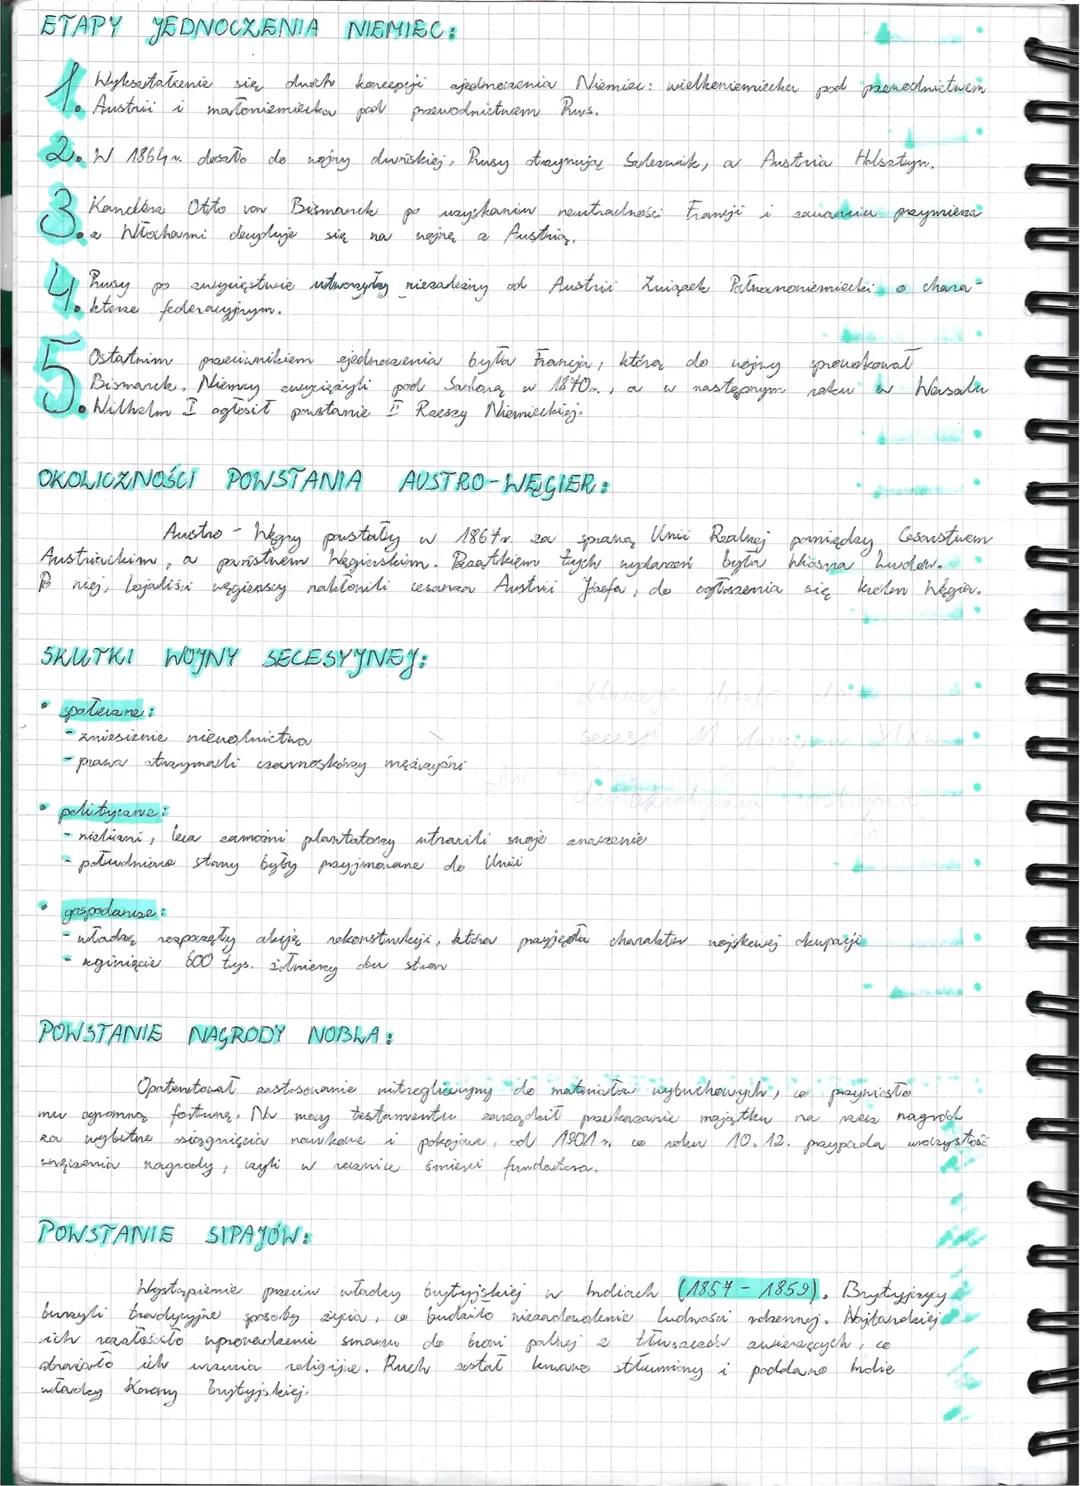 ETAPY JEDNOCZENIA NIEMIEC:
1. Wykształcenie się dwóch koncepcji zjednoczenia Niemiec: wielkoniemiecka pod przewodnictwem
Austrii i małoniemiecka pod przewodnictwem Prus.
2. W 1864 r. doszło do wojny duńskiej, Prusy otrzymują Szlezwik, a Austria Holsztyn.
3. Kanclerz Otto von Bismarck po uzyskaniu neutralności Francji i zawarciu przymierza
z Włochami decyduje się na wojnę z Austrią.
4. Prusy po zwycięstwie utworzyły niezależny od Austrii Związek Północnoniemiecki o chara-
kterze federacyjnym.
5. Ostatnim przeciwnikiem zjednoczenia była Francja, którą do wojny sprowokował
Bismarck. Niemcy zwyciężyli pod Sadową w 1870r., a w następnym roku w Wersalu
Wilhelm I ogłosił powstanie II Rzeszy Niemieckiej.
OKOLICZNOŚCI POWSTANIA AUSTRO-WĘGIER:
Austro-Węgry powstały w 1867r. za sprawą Unii Realnej pomiędzy Cesarstwem
Austriackim, a państwem Węgierskim. Początkiem tych wydarzeń była Wiosna Ludów.
P niej, Lojaliści węgierscy nakłonili cesarza Austrii Józefa, do ogłoszenia się królem Węgier.
SKUTKI WOJNY SECESYJNEJ:
• społeczne:
- zniesienie niewolnictwa
- prawa otrzymali czarnoskórzy mężczyźni
• polityczne:
- nieliczni, lecz zamożni plantatorzy utracili swoje znaczenie
- południowe stany były przyjmowane do Unii
• gospodarcze:
- władzę rozpoczęły akcję rekonstrukcji, która przyjęła charakter wojskowej okupacji
- zginięcie 600 tys. żołnierzy obu stron
POWSTANIE NAGRODY NOBLA:
Opatentował zastosowanie nitrogliceryny do materiałów wybuchowych, co przyniosło
mu ogromną fortunę. Na mocy testamentu zarządził przekazanie majątku na rzecz nagród
za wybitne osiągnięcia naukowe i pokojowe, od 1901 r. co roku 10.12. przypada uroczystość
wręczenia nagrody, czyli w rocznice śmierci fundatora.
POWSTANIE SIPAJÓW:
Wystąpienie przeciw władzy brytyjskiej w Indiach (1857 - 1859). Brytyjczycy
burzyli tradycyjne sposoby życia, co budziło niezadowolenie ludności rdzennej. Najbardziej
ich rozzłościło wprowadzenie smaru do broni palnej z tłuszczów zwierzęcych, co
obraziło ich uczucia religijne. Ruch został krwawo stłumiony i poddano Indie
władzy Korony Brytyjskiej.